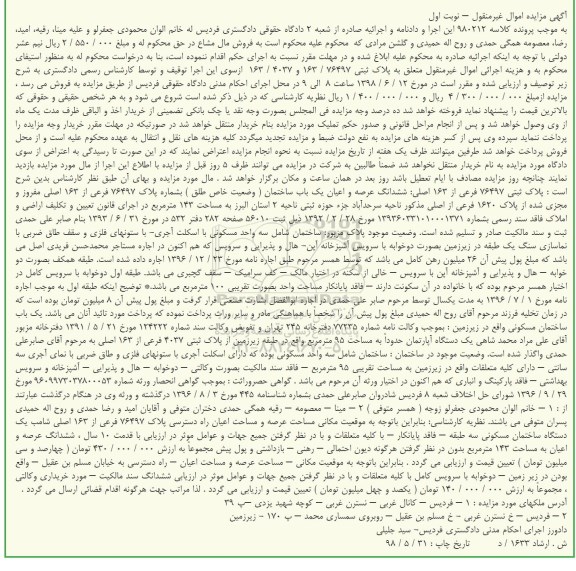 آگهی مزایده اموال غیرمنقول — نوبت اول
به موجب پرونده کلاسه ۹۸۰۲۱۲ این اجرا و دادنامه و اجرائیه صادره از شعبه ۲ دادگاه حقوقی دادگستری فردیس له خانم الوان محمودی جعفرلو و علیه مینا، رقیه، امید،
رضا، معصومه همگی حمدی و روح اله حمیدی و گلشن مرادی که محکوم علیه محکوم است به فروش مال مشاع در حق محکوم له و مبلغ ۰۰۰ / ۵۵۰ / ۲ ریال نیم عشر
دولتی با توجه به اینکه اجرائیه صادره به محکوم علیه ابلاغ شده و در مهلت مقرر نسبت به اجرای حکم اقدام ننموده است، بنا به درخواست محکوم له به منظور استیفای
محکوم به و هزینه اجرائی اموال غیرمنقول متعلق به پلاک ثبتی ۷۶۴۹۷ / ۱۶۳ و ۴۰۳۷ / ۱۶۳ ازسوی این اجرا توقیف و توسط کارشناس رسمی دادگستری به شرح
زیر توصیف و ارزیابی شده و مقرر است در مورخ ۱۲ / ۶ / ۱۳۹۸ ساعت ۸ الی ۹ در محل اجرای احکام مدنی دادگاه حقوقی فردیس از طریق مزایده به فروش می رسد ،
مزایده ازمبلغ ۰۰۰ / ۰۰۰ / ۳۰۰ / ۴ ریال و ۰۰۰ / ۰۰۰ / ۴۰۰ / ۱ ریال نظریه کارشناسی که در ذیل ذکر شده است شروع می شود و به هر شخص حقیقی و حقوقی که
بالاترین قیمت را پیشنهاد نماید فروخته خواهد شد ده درصد وجه مزایده فی المجلس بصورت وجه نقد یا چک بانکی تضمینی از خریدار اخذ و الباقی ظرف مدت یک ماه
از وی وصول خواهد شد و پس از انجام مراحل قانونی و صدور حکم تملیک مورد مزایده بنام خریدار منتقل خواهد شد در صورتیکه در مهلت مقرر خریدار وجه مزایده را
پرداخت ننماید سپرده وی پس از کسر هزینه های مزایده به نفع دولت ضبط و مزایده تجدید میگردد کلیه هزینه های نقل و انتقال به عهده محکوم علیه است و از محل
فروش پرداخت خواهد شد طرفین میتوانند ظرف یک هفته از تاریخ مزایده نسبت به نحوه انجام مزایده اعتراض نمایند که در این صورت تا رسیدگی به اعتراض از سوی
دادگاه مورد مزایده به نام خریدار منتقل نخواهد شد ضمناً طالبین به شرکت در مزایده می توانند ظرف ۵ روز قبل از مزایده با اطلاع این اجرا از مال مورد مزایده بازدید
نمایند چنانچه روز مزایده مصادف با ایام تعطیل باشد روز بعد در همان ساعت و مکان برگزار خواهد شد . مال مورد مزایده و بهای آن طبق نظر کارشناس بدین شرح
است : پلاک ثبتی ۷۶۴۹۷ فرعی از ۱۶۳ اصلی: ششدانگ عرصه و اعیان یک باب ساختمان ( وضعیت خاص طلق ) بشماره پلاک ۷۶۴۹۷ فرعی از ۱۶۳ اصلی مفروز و
مجزی شده از پلاک ۱۶۲۰ فرعی از اصلی مذکور ناحیه سرحدآباد جزء حوزه ثبتی ناحیه ۲ استان البرز به مساحت ۱۴۳ مترمربع در اجرای قانون تعیین و تکلیف اراضی و
املاک فاقد سند رسمی بشماره ۱۳۹۳۶۰۳۳۱۰۱۰۰۰۱۳۷۱ مورخ ۲۸ / ۱ / ۱۳۹۲ ذیل ثبت ۵۶۰۱۰ صفحه ۲۸۲ دفتر ۵۳۲ در مورخ ۳۱ / ۶ / ۱۳۹۳ بنام صابر علی حمدی
ثبت و سند مالکیت صادر و تسلیم شده است. وضعیت موجود پلاک مزبور ساختمان شامل سه واحد مسکونی با اسکلت آجری- با ستونهای فلزی و سقف طاق ضربی با
نماسازی سنگ یک طبقه در زیرزمین بصورت دوخوابه با سرویس آشپزخانه اپن- هال و پذیرایی و سرویس که هم اکنون در اجاره مستاجر محمدحسن فریدی اصل می
باشد که مبلغ پول پیش آن ۲۶ میلیون رهن کامل می باشد که توسط همسر مرحوم طبق اجاره نامه مورخ ۲۳ / ۱۲ / ۱۳۹۶ اجاره داده شده است، طبقه همکف بصورت دو
خوابه — هال و پذیرایی و آشپزخانه اپن با سرویس — خالی از سکنه در اختیار مالک — کف سرامیک — سقف گچبری می باشد. طبقه اول دوخوابه با سرویس کامل در
اختیار همسر مرحوم بوده که با خانواده در آن سکونت دارند — فاقد پایانکار مساحت واحد بصورت تقریبی ۱۰۰ مترمربع می باشد.* توضیح اینکه طبقه اول به موجب اجاره
نامه مورخ ۱ / ۷ / ۱۳۹۶ به مدت یکسال توسط مرحوم صابر علی حمدی در اجاره ابوالفضل بشارت صنعتی قرار گرفت و مبلغ پول پیش آن ۸ میلیون تومان بوده است که
در زمان تخلیه فرزند مرحوم آقای روح اله حمیدی مبلغ پول پیش آن را شخصاً با هماهنگی مادر و سایر وراث پرداخت نموده که پرداخت مورد تائید آنان می باشد. یک باب
ساختمان مسکونی واقع در زیرزمین : بموجب وکالت نامه شماره ۷۷۲۳۵ دفترخانه ۲۴۵ تهران و تفویض وکالت سند شماره ۱۲۴۲۲۲ مورخ ۲۱ / ۵ / ۱۳۹۱ دفترخانه مزبور
آقای علی مراد محمد شاهی یک دستگاه آپارتمان حدوداً به مساحت ۹۵ مترمربع واقع در طبقه زیرزمین از پلاک ثبتی ۴۰۳۷ فرعی از ۱۶۳ اصلی به مرحوم آقای صابرعلی
حمدی واگذار شده است. وضعیت موجود در ساختمان : ساختمان شامل ۳ واحد مسکونی بوده که دارای اسکلت آجری با ستونهای فلزی و طاق ضربی با نمای آجری سه
سانتی — دارای کلیه متعلقات واقع در زیرزمین به مساحت تقریبی ۹۵ مترمربع — فاقد سند مالکیت بصورت وکالتی — دوخوابه — هال و پذیرایی — آشپزخانه و سرویس
بهداشتی — فاقد پارکینگ و انباری که هم اکنون در اختیار ورثه آن مرحوم می باشد . گواهی حصروراثت : بموجب گواهی انحصار ورثه شماره ۹۶۰۹۹۷۳۰۳۷۸۰۰۰۵۳ مورخ
۲۹ / ۹ / ۱۳۹۶ شورای حل اختلاف شعبه ۸ فردیس شادروان صابرعلی حمدی بشماره شناسنامه ۴۴۵ مورخ ۳ / ۸ / ۱۳۹۶ درگذشته و ورثه وی در هنگام درگذشت عبارتند
از : ۱ — خانم الوان محمودی جعفرلو زوجه ( همسر متوفی ) ۲ — مینا — معصومه — رقیه همگی حمدی دختران متوفی و آقایان امید و رضا حمدی و روح اله حمیدی
پسران متوفی می باشند. نظریه کارشناسی: بنابراین باتوجه به موقعیت مکانی مساحت عرصه و مساحت اعیان راه دسترسی پلاک ۷۶۴۹۷ فرعی از ۱۶۳ اصلی شامب یک
دستگاه ساختمان مسکونی سه طبقه — فاقد پایانکار — با کلیه متعلقات و با در نظر گرفتن جمیع جهات و عوامل موثر در ارزیابی با قدمت ۱۰ سال ، ششدانگ عرصه و
اعیان به مساحت ۱۴۳ مترمربع بدون در نظر گرفتن هرگونه دیون احتمالی — رهنی — بازداشتی و پول پیش مجموعاً به ارزش ۰۰۰ / ۰۰۰ / ۴۳۰ تومان ( چهارصد و سی
میلیون تومان ) تعیین قیمت و ارزیابی می گردد . بنابراین باتوجه به موقعیت مکانی — مساحت عرصه و مساحت اعیان — راه دسترسی به خیابان مسلم بن عقیل — واقع
بودن در زیر زمین — دوخوابه با سرویس کامل با کلیه متعلقات و با در نظر گرفتن جمیع جهات و عوامل موثر در ارزیابی ششدانگ سند مالکیت — مورد خریداری وکالتی
، مجموعاً به ارزش ۰۰۰ / ۰۰۰ / ۱۴۰ تومان ( یکصد و چهل میلیون تومان ) تعیین قیمت و ارزیابی می گردد . لذا مراتب جهت هرگونه اقدام قضائی ارسال می گردد .
آدرس ملکهای مورد مزایده : ۱ — فردیس — کانال غربی — نسترن غربی — کوچه شهید یزدی —پ ۳۹
۲ — فردیس — خ نسترن غربی — خ مسلم بن عقیل — روبروی سمساری محمد — پ ۱۷۰ — زیرزمین
دادورز اجرای احکام مدنی دادگستری فردیس- سید جلیلی
ش . ارشاد ۱۶۳۳ / د تاریخ چاپ : ۳۱ / ۵ / ۹۸